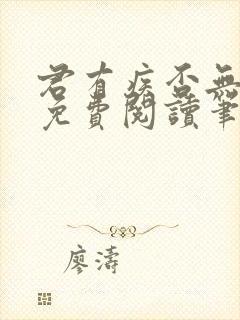 君有疾否無
免費閱讀筆
廖濤